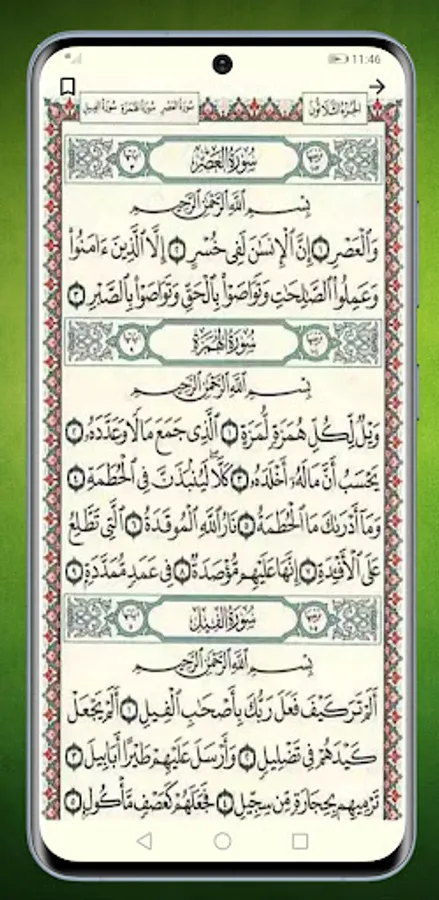 11:46
الجزء الثلاثون
سورة العصر سورة الهمزة سورة الفيل
سُورَةُ العَصْرِ
بِسْمِ اللَّهِ الرَّحْمَٰنِ الرَّحِيمِ
وَالْعَصْرِ ١ إِنَّ الْإِنسَانَ لَفِي خُسْرٍ ٢ إِلَّا الَّذِينَ ءَامَنُوا
وَعَمِلُوا الصَّالِحَاتِ وَتَوَاصَوْا بِالْحَقِّ وَتَوَاصَوْا بِالصَّبْرِ ٣
سُورَةُ الهُمَزَةِ
بِسْمِ اللَّهِ الرَّحْمَٰنِ الرَّحِيمِ
وَيْلٌ لِّكُلِّ هُمَزَةٍ لُّمَزَةٍ ١ الَّذِي جَمَعَ مَالًا وَعَدَّدَهُ ٢
يَحْسَبُ أَنَّ مَالَهُ أَخْلَدَهُ ٣ كَلَّا لَيُنبَذَنَّ فِي الْحُطَمَةِ ٤
وَمَا أَدْرَىٰكَ مَا الْحُطَمَةُ ٥ نَارُ اللَّهِ الْمُوقَدَةُ ٦ الَّتِي تَطَّلِعُ
عَلَى الْأَفْئِدَةِ ٧ إِنَّهَا عَلَيْهِم مُّؤْصَدَةٌ ٨ فِي عَمَدٍ مُّمَدَّدَةٍ ٩
سُورَةُ الفِيلِ
بِسْمِ اللَّهِ الرَّحْمَٰنِ الرَّحِيمِ
أَلَمْ تَرَ كَيْفَ فَعَلَ رَبُّكَ بِأَصْحَابِ الْفِيلِ ١ أَلَمْ يَجْعَلْ
كَيْدَهُمْ فِي تَضْلِيلٍ ٢ وَأَرْسَلَ عَلَيْهِمْ طَيْرًا أَبَابِيلَ ٣
تَرْمِيهِم بِحِجَارَةٍ مِّن سِجِّيلٍ ٤ فَجَعَلَهُمْ كَعَصْفٍ مَّأْكُولٍ ٥